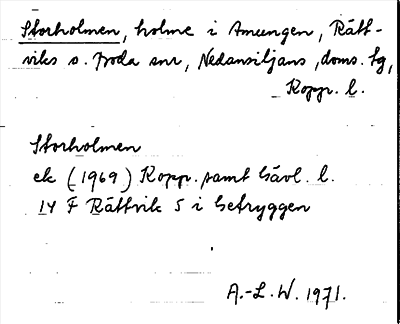 Storholmen, holme i Amungen, Rätt-
viks o. Boda snr, Nedansiljans doms. tg,
Kopp. l.
Storholmen
ek (1969) Kopp. samt Gävl. l.
14 F Rättvik S i Getryggen
A.-L. W. 1971.